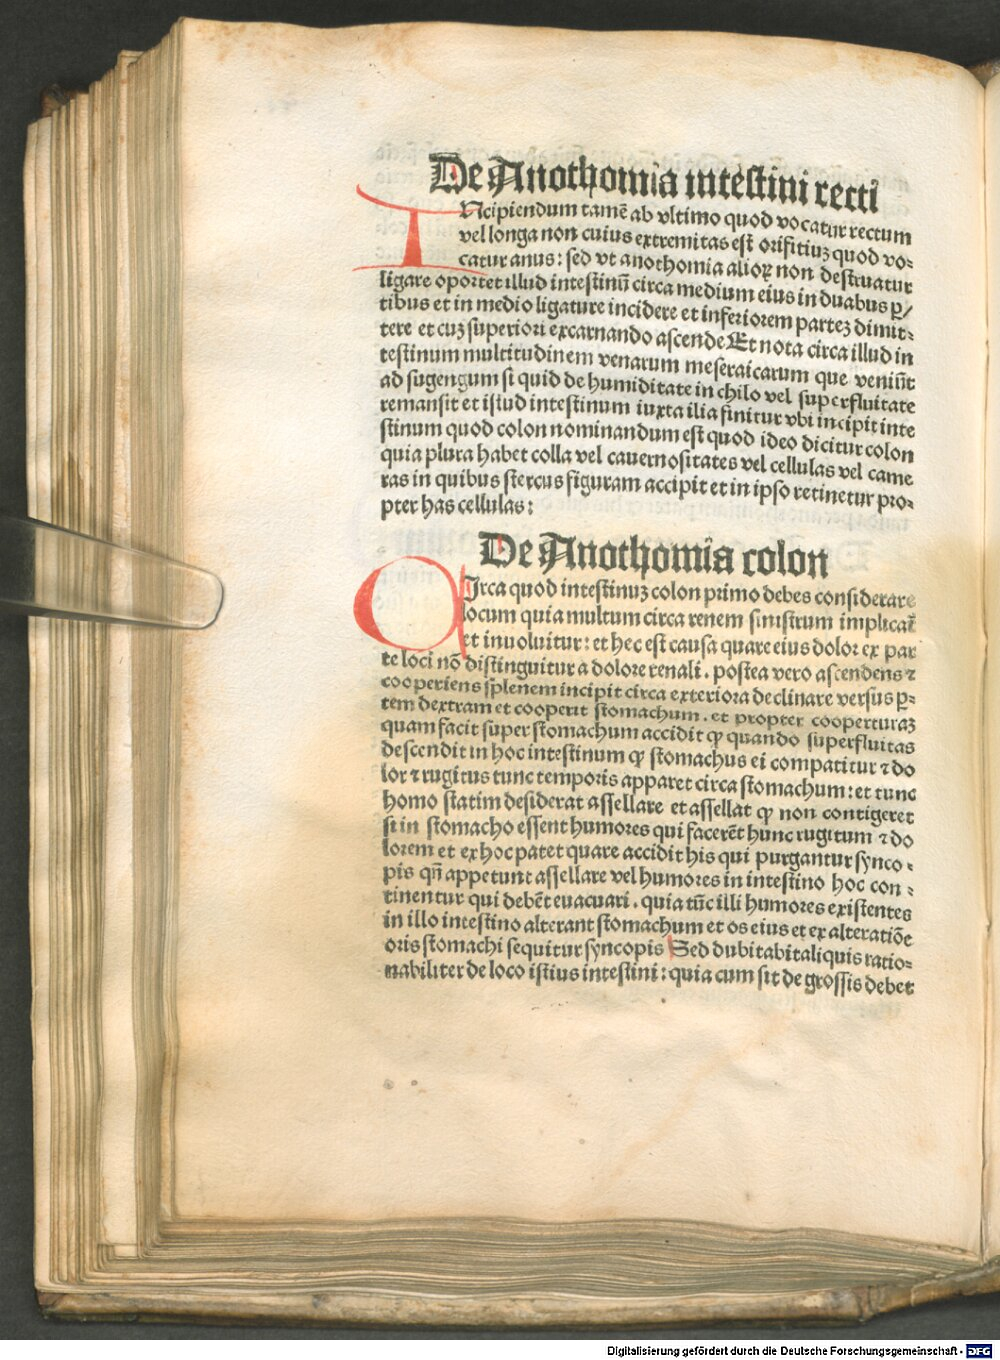 De Anothomia intestini recti
INcipiendum tamē ab vltimo quod vocatur rectum
vel longa non cuius extremitas est orifitiuꝫ quod vo⸗
catur anus: sed vt anothomia alioꝝ non destruatur
ligare oportet illud intestinū circa medium eius in duabus ꝑ/
tibus et in medio ligature incidere et inferiorem parteꝫ dimit⸗
tere et cuꝫ superiori excarnando ascende Et nota circa illud in
testinum multitudinem venarum meseraicarum que veniūt
ad sugengum si quid de humiditate in chilo vel superfluitate
remansit et istud intestinum iuxta ilia finitur vbi incipit inte
stinum quod colon nominandum est quod ideo dicitur colon
quia plura habet colla vel cauernositates vel cellulas vel came
ras in quibus stercus figuram accipit et in ipso retinetur pro⸗
pter has cellulas:
De Anothomia colon
CIrca quod intestinuꝫ colon primo debes considerare
locum quia multum circa renem sinistrum implicat̄
et inuoluitur: et hec est causa quare eius dolor ex par
te loci nō distinguitur a dolore renali. postea vero ascendens ⁊
cooperiens splenem incipit circa exteriora declinare versus ꝑ⸗
tem dextram et cooperit stomachum. et propter cooperturaꝫ
quam facit super stomachum accidit ꝙ quando superfluitas
descendit in hoc intestinum ꝙ stomachus ei compatitur ⁊ do
lor ⁊ rugitus tunc temporis apparet circa stomachum: et tunc
homo statim desiderat assellare et assellat ꝙ non contigeret
si in stomacho essent humores qui facerēt hunc rugitum ⁊ do
lorem et ex hoc patet quare accidit his qui purgantur synco⸗
pis qn̄ appetunt assellare vel humores in intestino hoc con⸗
tinentur qui debēt euacuari. quia tūc illi humores existentes
in illo intestino alterant stomachum et os eius et ex alteratiōe
oris stomachi sequitur syncopis Sed dubitabit aliquis ratio⸗
nabiliter de loco istius intestini: quia cum sit de grossis debet
Digitalisierung gefördert durch die Deutsche Forschungsgemeinschaft - DFG